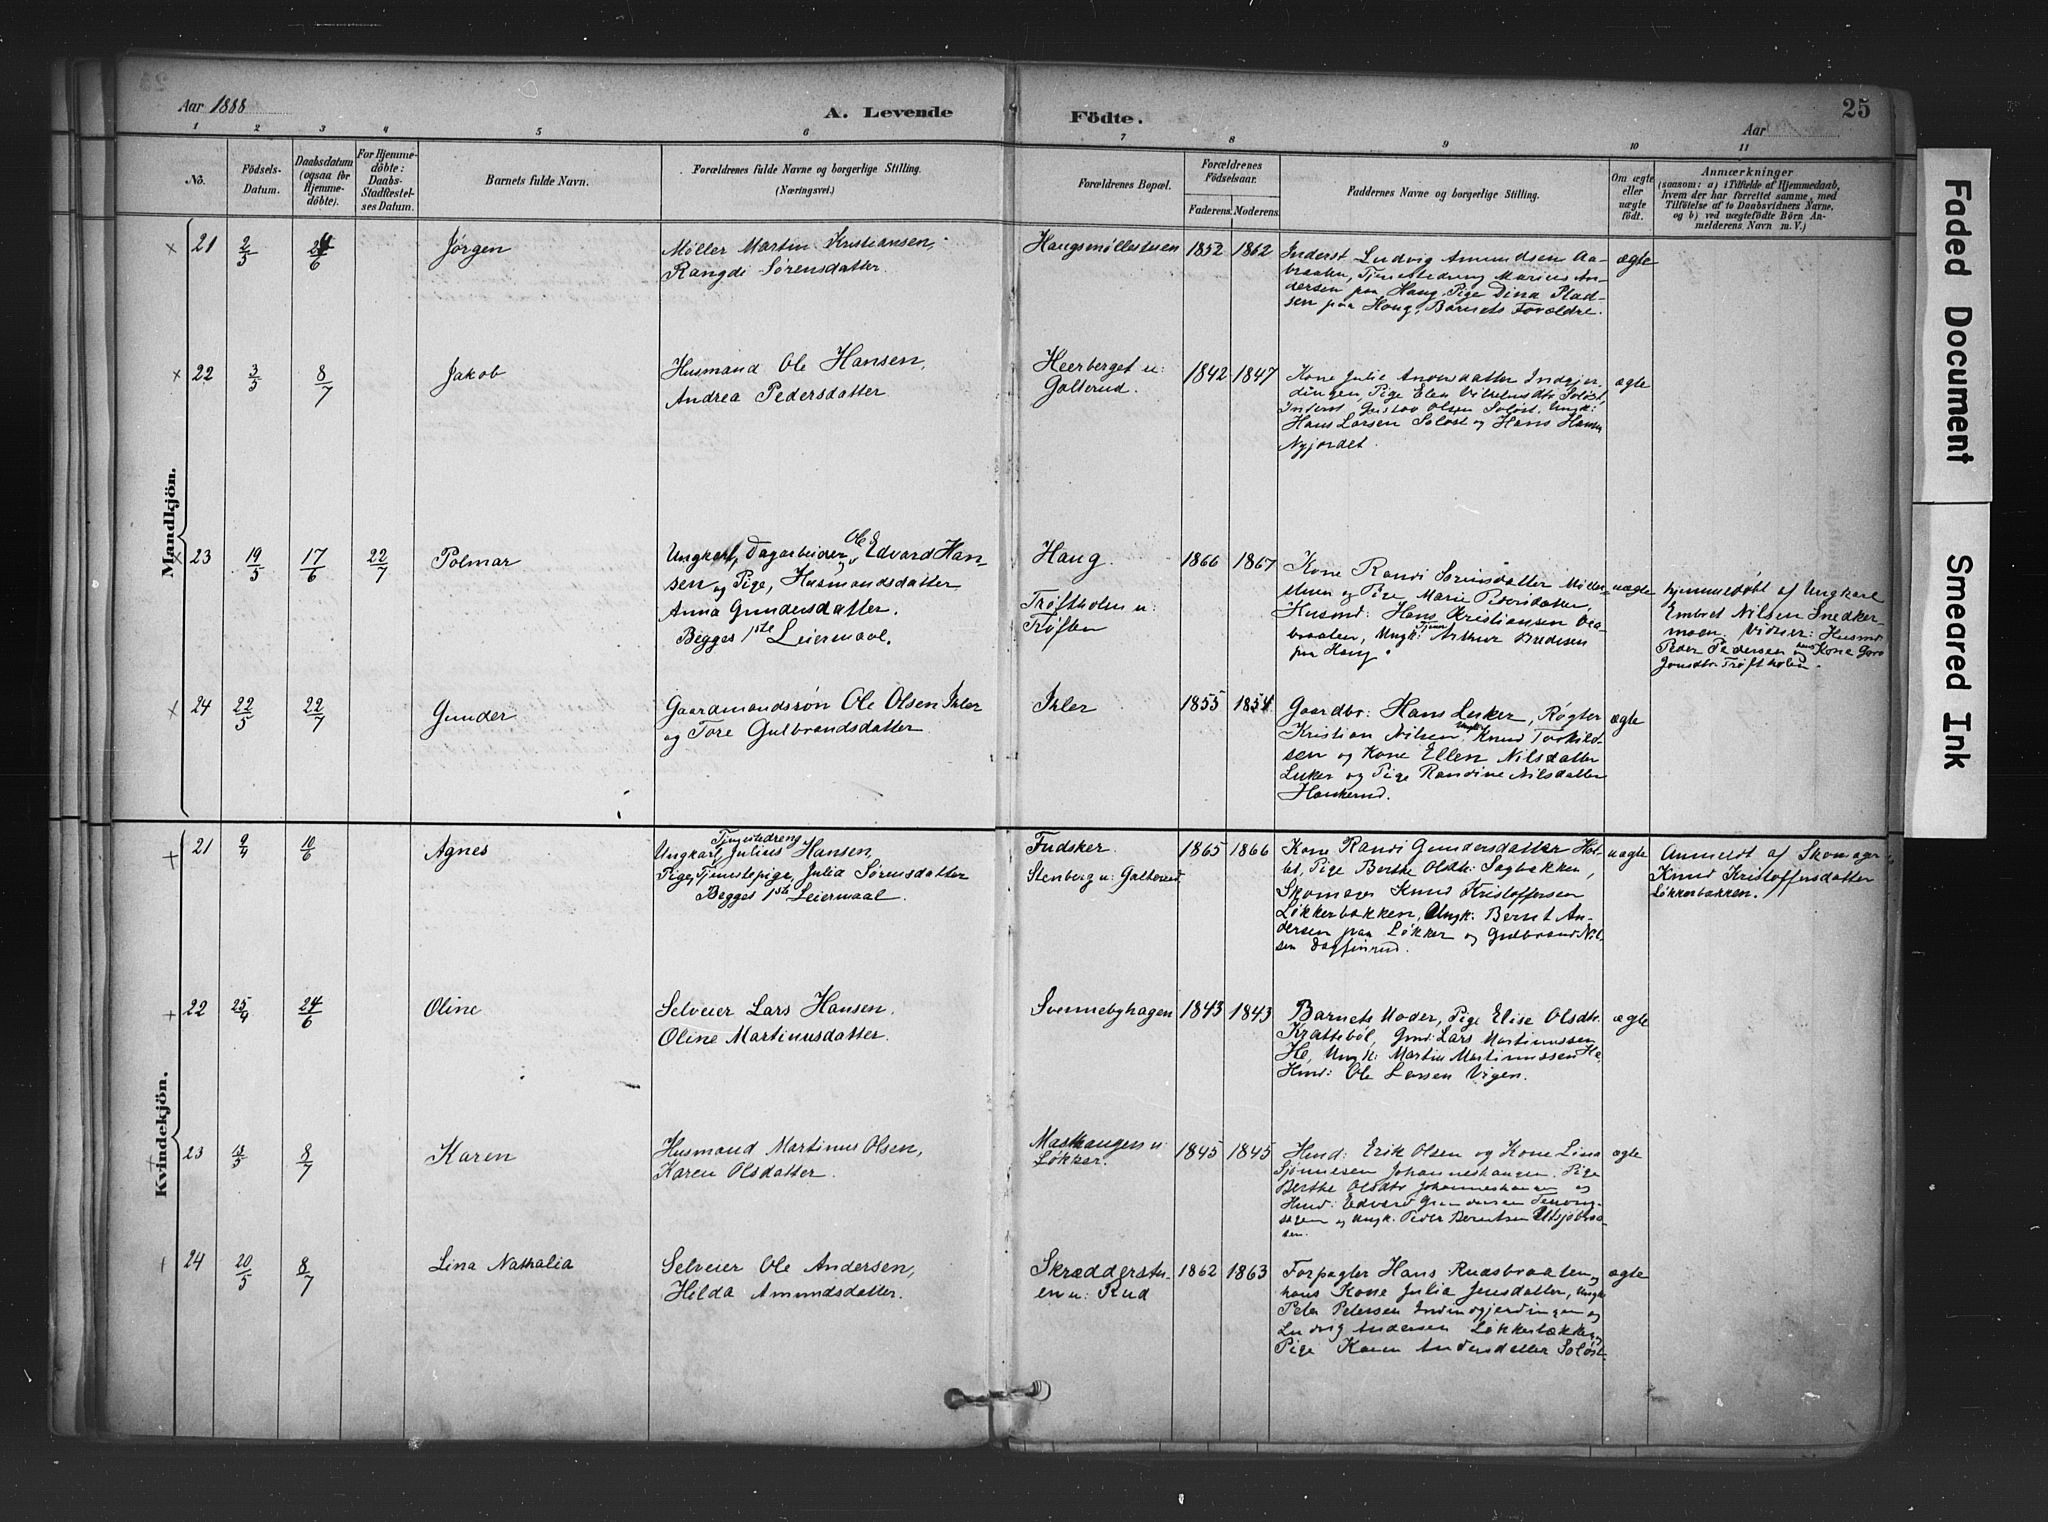 Aar 1888
A. Levende
Födte.
25
Aar
1 2 3 4 5 6 7 8 9 10 11
No.
Födsels-
Datum.
Daabsdatum
(ogsaa for
Hjemme-
döbte).
For Hjemme-
döbte:
Daabs-
Stadfæstel-
ses Datum.
Barnets fulde Navn.
Forældrenes fulde Navne og borgerlige Stilling.
(Næringsvei.)
Forældrenes Bopæl.
Forældrenes
Födselsaar.
Faderens. Moderens.
Faddernes Navne og borgerlige Stilling.
Om ægte
eller
uægte
födt.
Anmærkninger
(saasom: a) i Tilfælde af Hjemmedaab,
hvem der har forrettet samme, med
Tilföielse af to Daabsvidners Navne,
og b) ved uægtefödte Börn An-
melderens Navn m. V.)
Mandkjön.
21 2/5 24/6 Jørgen
Møller Martin Kristiansen,
Rangdi Sörensdatter.
Haugsmöllestuen 1852 1862
Inderst Ludvig Amundsen Aa-
braaten, Tjenestedreng Marius An-
dersen paa Haug, Pige Dina Plad-
sen paa Haug, Barnets Forældre.
ægte
22 3/5 8/7 Jakob
Husmand Ole Hansen,
Andrea Pedersdatter
Heerberget u:
Galterud. 1842 1847
Kone Julie Andersdatter Indgjer-
dingen Pige Elen Vilhelmsdtr Soløst,
Inderst Gustav Olsen Soløst, Ungk:
Hans Larsen Soløst og Hans Hansen
Nyjordet.
ægte
23 19/5 17/6 22/7 Polmar
Ungkarl, Dagarbeider Ole Edvard Han-
sen og Pige, Husmandsdatter
Anna Gundersdatter.
Begges 1ste Leiermaal.
Haug.
Trøftholen u:
Trøften
1866 1867
Kone Randi Sørensdatter Møller-
stuen og Pige Marie Pedersdatter,
Husmd: Hans Kristiansen Aa-
braaten, Ungk: Tjener Arthur Budesen
paa Haug.
uægte
hjemmedøbt af Ungkarl
Embret Nilsen Snedker-
moen. Vidner: Husmd
Peder Pedersen og hans Kone Goro
Jonsdtr Trøftholen.
24 22/5 22/7 Gunder
Gaardmandssøn Ole Olsen Ihler
og Tore Gulbrandsdatter.
Ihler 1855 1854
Gaardbr: Hans Leker, Røgter
Kristian Nilsen, Ungk: Knud Torkild-
sen og Kone Ellen Nilsdatter
Leker og Pige Randine Nilsdatter
Haukerud.
ægte
Kvindekjön.
21 9/4 10/6 Agnes
Ungkarl, Tjenestedreng Julius Hansen,
Pige, Tjenestepige, Julia Sørensdatter
Begges 1ste Leiermaal.
Fudsker.
Stenberg u: Galterud. 1865 1866
Kone Randi Gundersdatter
Pige Berthe Olsdtr: Sagbakken,
Skomager Knud Kristoffersen
Løkkerbakken, Ungk: Bernt An-
dersen paa Løkker og Gulbrand Nil-
sen Dagfinrud.
uægte
Anmeldt af Skomager
Knud Kristoffersdatter
Løkkerbakken.
22 25/4 24/6 Oline
Selveier Lars Hansen.
Oline Martinusdatter.
Svennebyhagen 1843 1843
Barnets Moder, Pige Elise Olsdtr.
Krattebøl, Gmd: Lars Martinussen
He, Ungk: Martin Martinussen He,
Hmd: Ole Larsen Vigen.
ægte
23 13/5 8/7 Karen
Husmand Martinus Olsen,
Karen Olsdatter.
Masthaugen u:
Løkker. 1845 1845
Hmd: Erik Olsen og Kone Lina
Johanneshaugen, Pige
Berthe Olsdtr Johanneshaugen og
Hmd: Edvard Gundersen
og Ungk: Peder Berntsen
ægte
24 20/5 8/7 Lina Nathalia
Selveier Ole Andersen,
Helda Amundsdatter.
Skrædderstu-
en u: Rud 1862 1863
Forpagter Hans Rudsbraaten og
hans Kone Julia Jensdatter, Ungk:
Peter Petersen Indingjerdingen og
Ludvig Andersen Løkkerbakken,
Pige Karen Andersdatter Soløst.
ægte
Faded Document
Smeared Ink